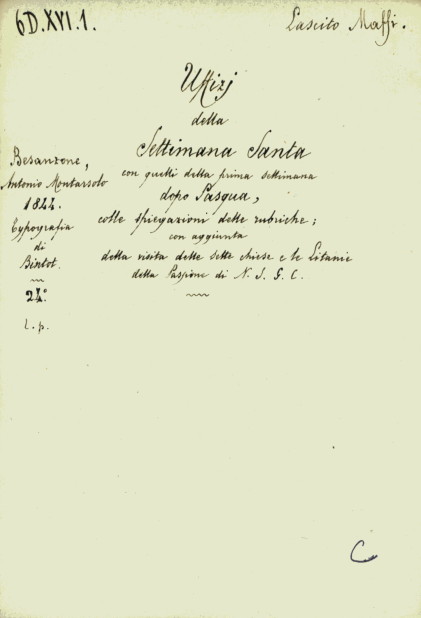 6D.XVI.1.
Lascito Maffi.
Uffizj
della
Settimana Santa
con quelli della prima settimana
dopo Pasqua,
colle spiegazioni delle rubriche;
con aggiunta
della visita delle sette chiese e le Litanie
della Passione di N. S. G. C.
Besanzone,
Antonio Montarsolo
1844.
Typografia
di
Bintot.
24°
l. p.
C